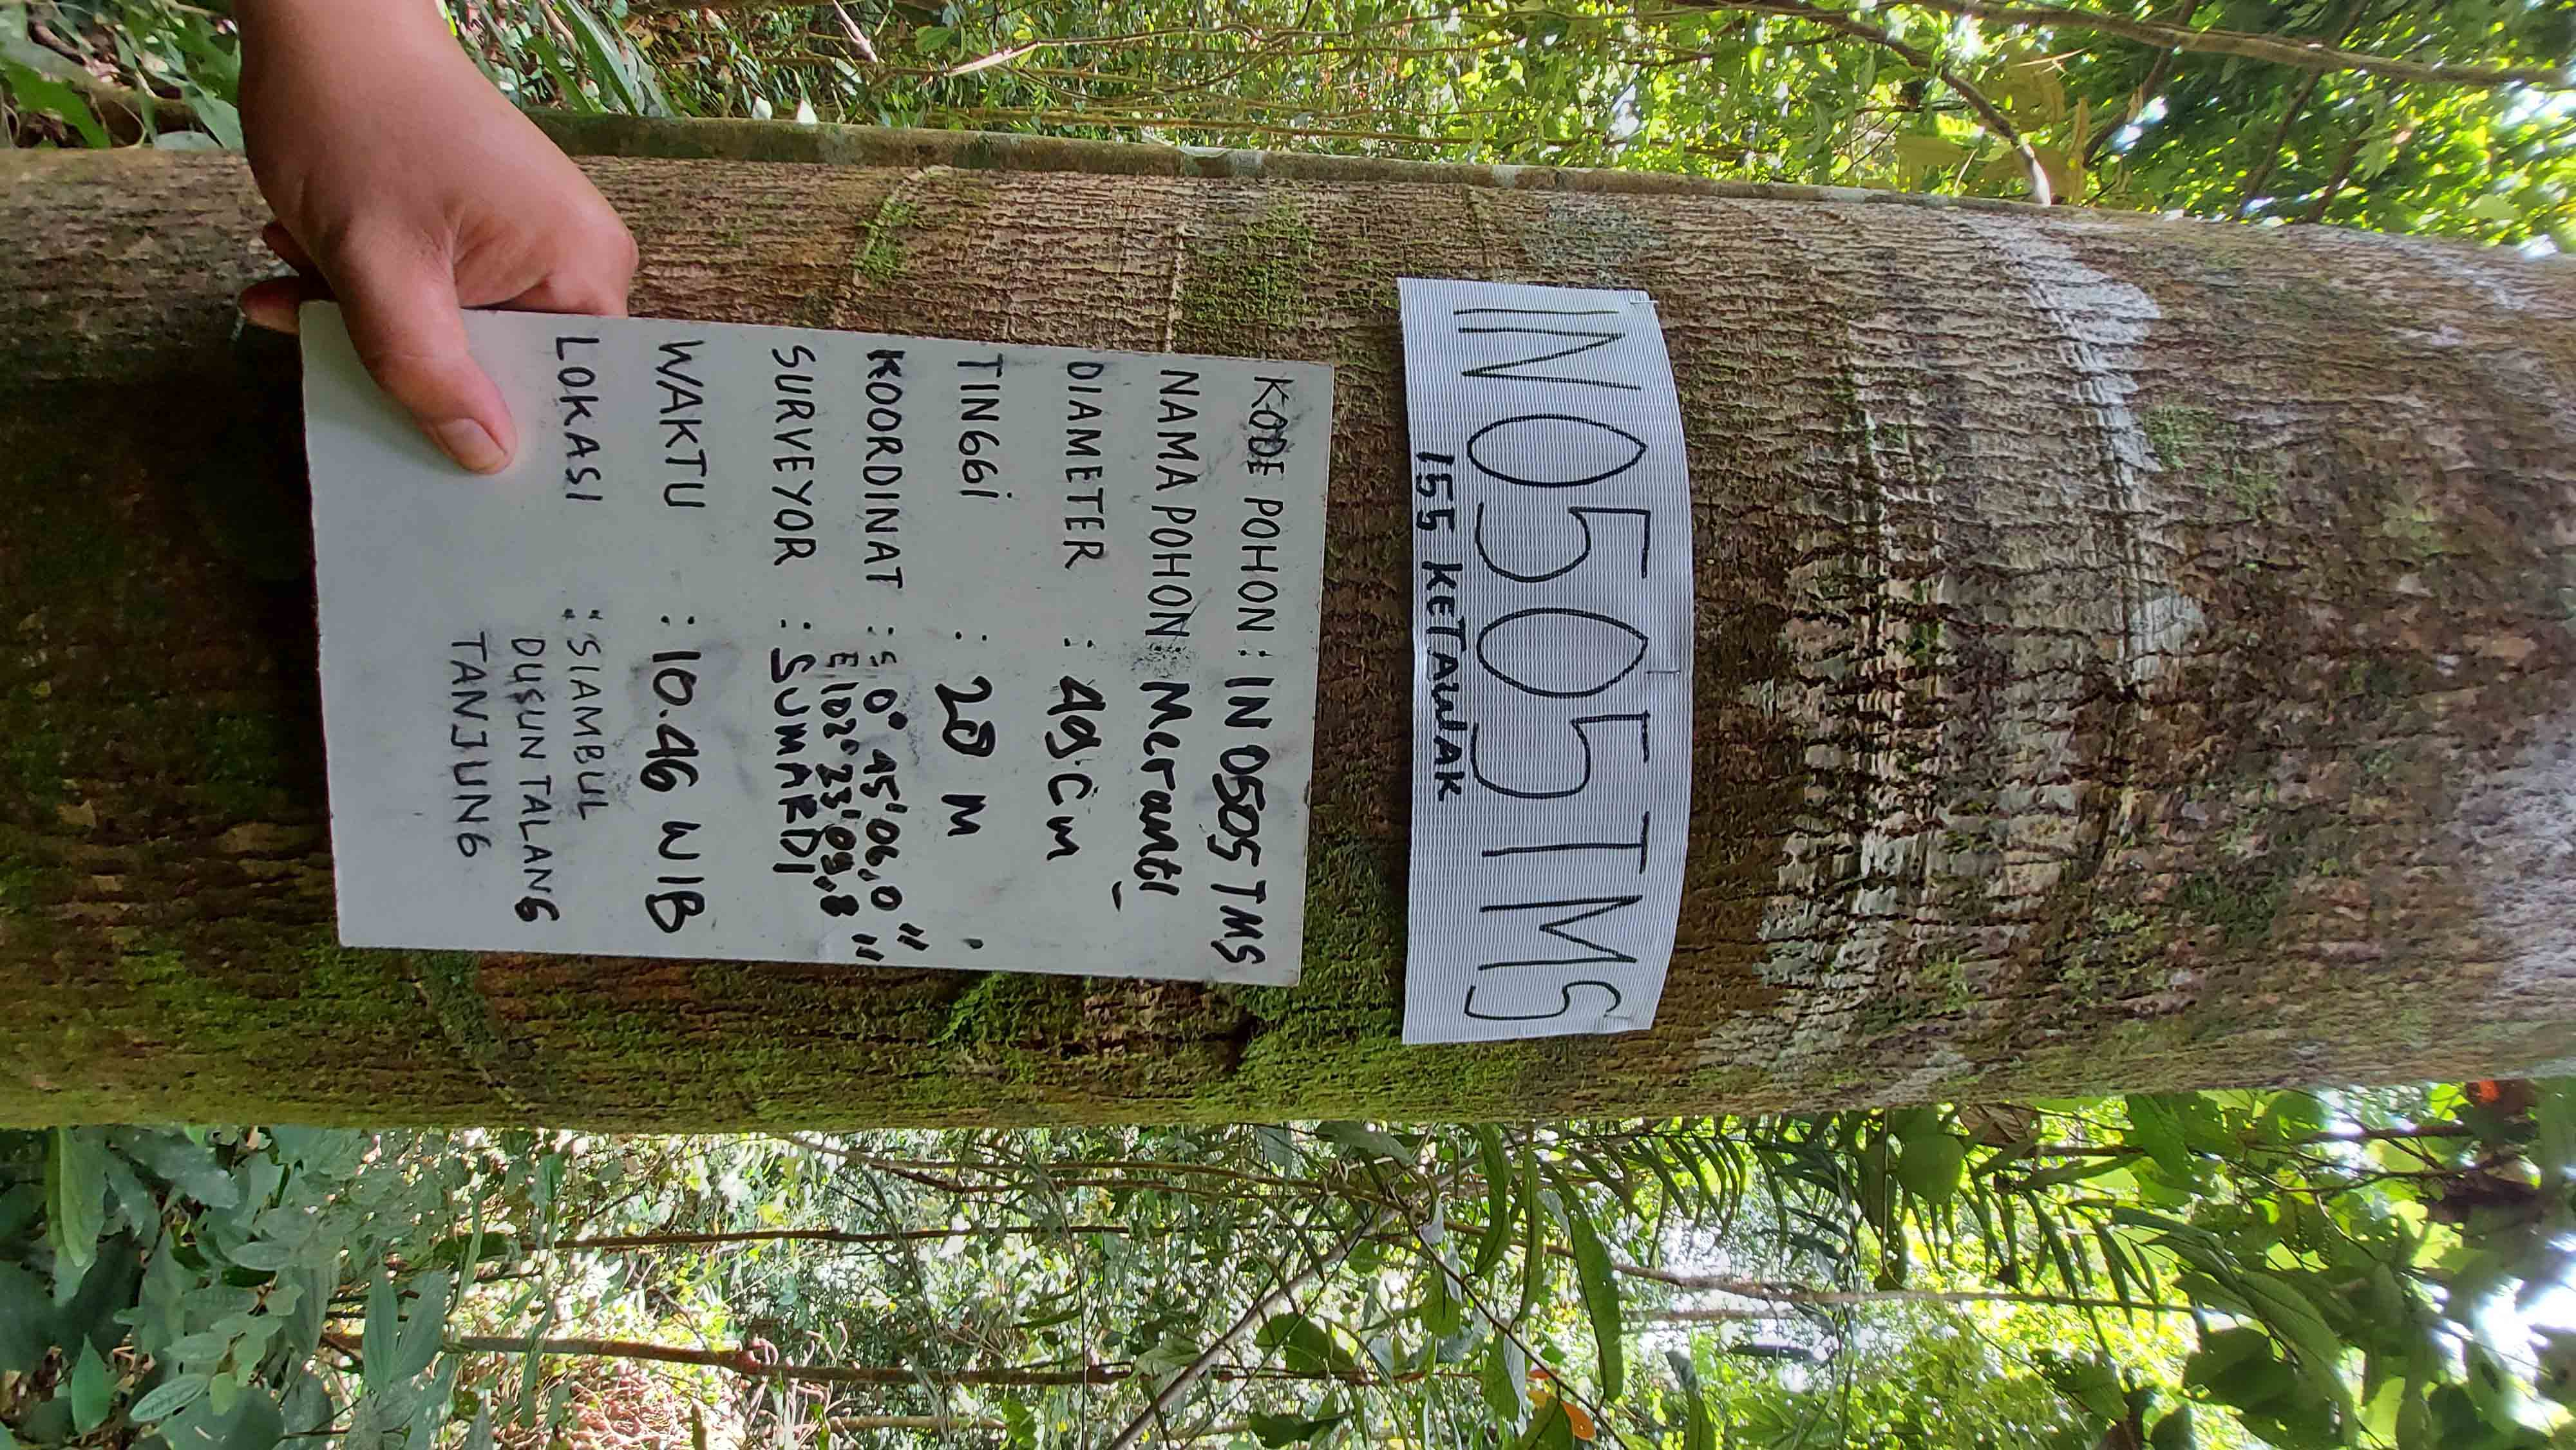 IN0505TMS
155 KETAWAK
KODE POHON : IN 0505 TMS
NAMA POHON : Meranti
DIAMETER : 49 Cm
TINGGI : 20 M
KOORDINAT : S 0° 45' 06,0"
E 102° 23' 09,8"
SURVEYOR : SUMARDI
WAKTU : 10.46 WIB
LOKASI : SIAMBUL
DUSUN TALANG
TANJUNG